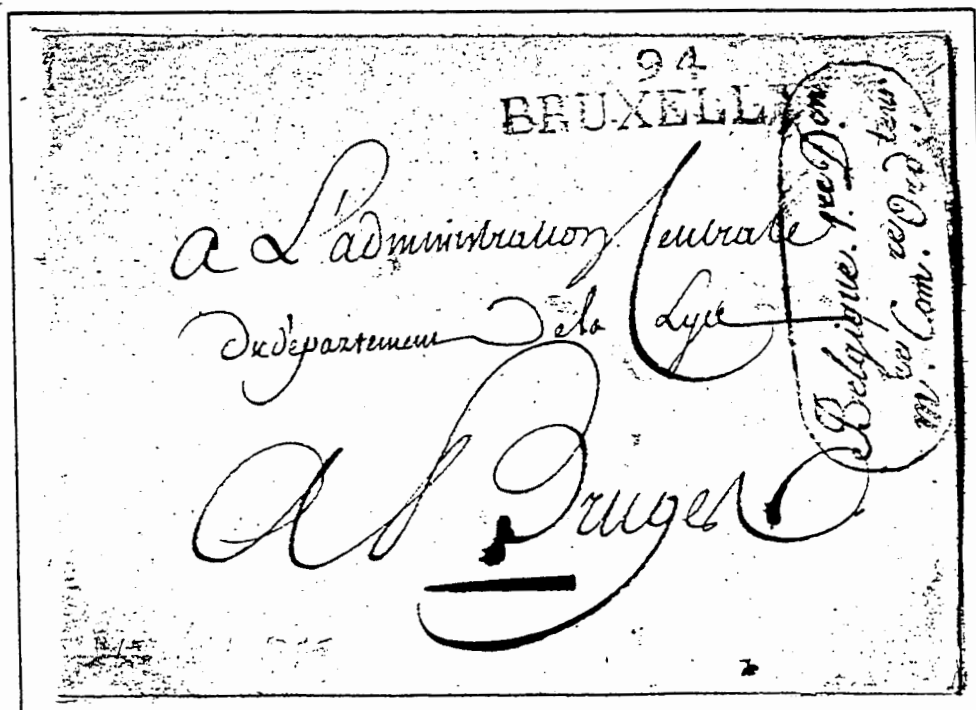 94
BRUXELLES
a L'administration Centrale
du département de la Lys
A Bruges
Belgique. 1.re D.on
m. les Com. res Ord. teurs.